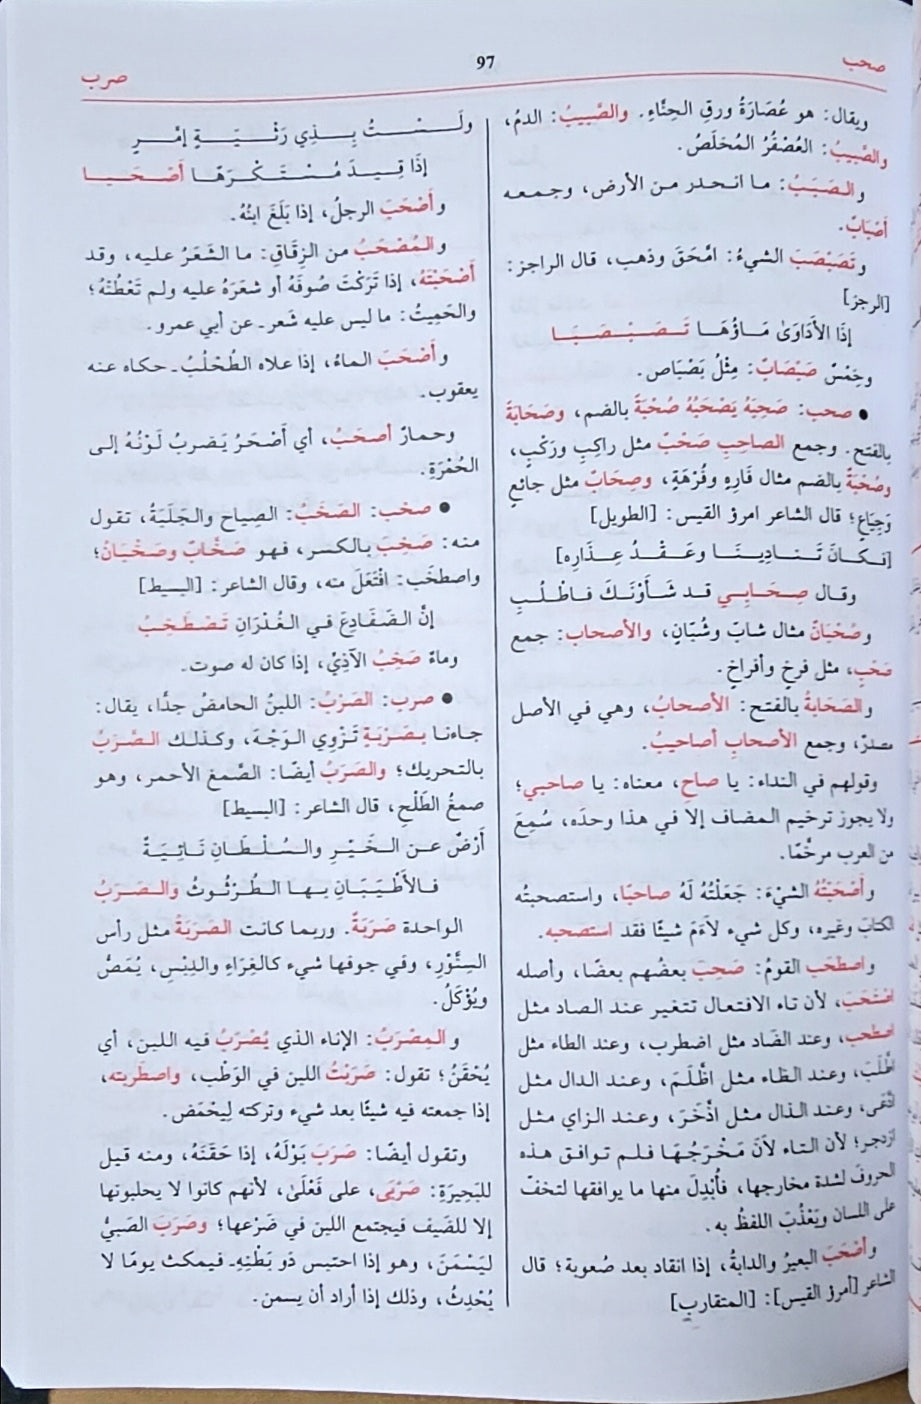 صحب
97
صرب
ويقال: هو عُصَارَةُ ورقِ الحِنَّاءِ. والصَّبيبُ: الدمُ،
والصَّبيبُ: العُصْفُرُ المُخلَصُ.
والصَبَبُ: ما انحدر من الأرض، وجمعه
أصْبَابٌ.
وتَصَبْصَبَ الشيءُ: امَّحَقَ وذهب، قال الراجز:
[الرجز]
إذَا الأَدَاوَىٰ مَاؤُهَا تَصَبْصَبَا
وخِمْسٌ صَبْصَابٌ: مِثْلُ بَصْبَاص.
● صحب: صَحِبَهُ يَصْحَبُهُ صُحْبَةً بالضم، وصَحَابَةً
بالفتح. وجمع الصاحِبِ صَحْبٌ مثل راكِبٍ ورَكْبٍ،
وصُحْبَةٌ بالضم مثال فَارِهٍ وفُرْهَةٍ، وصِحَابٌ مثل جائعٍ
وَجِيَاعٍ؛ قال الشاعر امرؤ القيس: [الطويل]
[فكانَ تَنَادِينَا وعَقْدُ عِذَارِهِ]
وقال صِحَابِي قد شَأَوْنَكَ فاطْلُبِ
وصُحْبَانٌ مثال شابّ وشُبَّانٍ، والأصحاب: جمع
صَحْبٍ، مثل فرخٍ وأفراخٍ.
والصَحَابةُ بالفتح: الأصحابُ، وهي في الأصل
مصدرٌ، وجمع الأصحابِ أصاحيبُ.
وقولهم في النداء: يا صاحِ، معناه: يا صاحبي؛
ولا يجوز ترخيم المضاف إلا في هذا وحدَه، سُمِعَ
من العرب مرخَّمًا.
وأصْحَبْتُهُ الشيْءَ: جَعَلْتُهُ لَهُ صاحبًا، واستصحبتُه
الكتابَ وغيره، وكل شيء لاَءَمَ شيئًا فقَد استصحبه.
واصطَحَب القومُ: صَحِبَ بعضُهم بعضًا، وأصله
اصْتَحَبَ، لأن تاء الافتعال تتغير عند الصاد مثل
اصطحب، وعند الضَاد مثل اضطرب، وعند الطاء مثل
اطَّلَبَ، وعند الظاء مثل اظَّلَمَ، وعند الدال مثل
ادَّعَى، وعند الذال مثل اذَّخَرَ، وعند الزاي مثل
ازدجر؛ لأن التاء لاَنَ مَخْرَجُهَا فلم توافق هذه
الحروفَ لشدة مخارجها، فأُبْدِلَ منها ما يوافقها لتخفّ
على اللسان ويَعْذُبَ اللفظُ به.
وأَصْحَبَ البعيرُ والدابةُ، إذا انقاد بعد صُعوبة؛ قال
الشاعر [امرؤ القيس]: [المتقارب]
ولَسْتُ بِذِي رَثْيَةٍ إمَّرٍ
إذَا قِيدَ مُسْتَكْرَهًا أَصْحَبَا
وأَصْحَبَ الرجلُ، إذا بَلَغَ ابنُهُ.
والمُصْحَبُ من الزِقَاقِ: ما الشَعَرُ عليه، وقد
أَصْحَبْتَهُ، إذا تَرَكْتَ صُوفَهُ أو شعَرَهُ عليه ولم تَعْطُنْهُ؛
والحَمِيتُ: ما ليس عليه شَعر۔ عن أبي عمرو.
وأَصْحَبَ الماءُ، إذا علاه الطُحْلُبُ۔ حكاه عنه
يعقوب.
وحمارٌ أصحَبُ، أي أَصْحَرُ يَضربُ لَوْنُهُ إلى
الحُمْرَةِ.
● صخب: الصَخَبُ: الصِياح والجَلَبَةُ، تقول
منه: صَخِبَ بالكسر، فهو صَخَّابٌ وصَخْبَانُ؛
واصطخَبَ: افْتَعَلَ منه، وقال الشاعر: [البسيط]
إنَّ الضَفَادِعَ في الغُدْرَانِ تَصْطَخِبُ
وماءٌ صَخْبُ الآذِيِّ، إذا كان له صوت.
● صرب: الصَرْبُ: اللبنُ الحامضُ جدًّا، يقال:
جاءنا بصَرْبَةٍ تَزْوِي الوَجْهَ، وكذلك الصَّرَبُ
بالتحريك؛ والصَرَبُ أيضًا: الصَّمغ الأحمر، وهو
صمغُ الطَلْحِ، قال الشاعر: [البسيط]
أَرْضٌ عن الخَيْرِ والسُلْطَانِ نَائِيَةٌ
فالأَطْيَبَانِ بها الطُرْثُوثُ والصَرَبُ
الواحدة صَرَبَةٌ. وربما كانت الصَرَبَةُ مثل رأس
السِنَّوْرِ، وفي جوفها شيء كالغِرَاءِ والدِبْسِ، يُمَصُّ
ويُؤْكَلُ.
والمِصْرَبُ: الإناء الذي يُصْرَبُ فيه اللبن، أي
يُحْقَنُ؛ تقول: صَرَبْتُ اللبن في الوَطْب، واصطَربته،
إذا جمعته فيه شيئًا بعد شيء وتركته لِيحْمَض.
وتقول أيضًا: صرَبَ بَوْلَهُ، إذا حَقَنَهُ، ومنه قيل
للبَحِيرَةِ: صَرْبَى، على فَعْلَىٰ، لأنهم كانوا لا يحلبونها
إلا للضَيف فيجتمع اللبن في ضَرْعها؛ وصَرَبَ الصَبيُّ
ليَسْمَنَ، وهو إذا احتبس ذو بَطْنِهِ۔ فيمكث يومًا لا
يُحْدِثُ، وذلك إذا أراد أن يسمن.